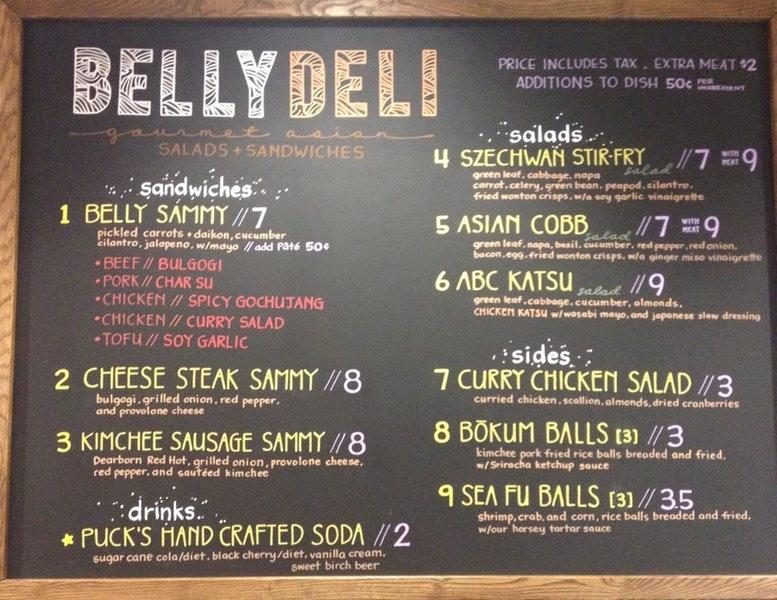 BELLY DELI
gourmet asian
SALADS + SANDWICHES
PRICE INCLUDES TAX - EXTRA MEAT $2
ADDITIONS TO DISH 50¢ PER INGREDIENT
sandwiches
1 BELLY SAMMY // 7
pickled carrots + daikon, cucumber
cilantro, jalapeno, w/mayo // add Pâté 50¢
• BEEF // BULGOGI
• PORK // CHAR SU
• CHICKEN // SPICY GOCHUJANG
• CHICKEN // CURRY SALAD
• TOFU // SOY GARLIC
2 CHEESE STEAK SAMMY // 8
bulgogi, grilled onion, red pepper,
and provolone cheese
3 KIMCHEE SAUSAGE SAMMY // 8
Dearborn Red Hot, grilled onion, provolone cheese,
red pepper, and sautéed kimchee
drinks
★ PUCK'S HAND CRAFTED SODA // 2
sugar cane cola/diet, black cherry/diet, vanilla cream,
sweet birch beer
salads
4 SZECHWAN STIR-FRY salad // 7 WITH MEAT 9
green leaf, cabbage, napa
carrot, celery, green bean, peapod, cilantro,
fried wonton crisps, w/a soy garlic vinaigrette
5 ASIAN COBB salad // 7 WITH MEAT 9
green leaf, napa, basil, cucumber, red pepper, red onion,
bacon, egg, fried wonton crisps, w/a ginger miso vinaigrette
6 ABC KATSU salad // 9
green leaf, cabbage, cucumber, almonds,
CHICKEN KATSU w/wasabi mayo, and japanese slow dressing
sides
7 CURRY CHICKEN SALAD // 3
curried chicken, scallion, almonds, dried cranberries
8 BŌKUM BALLS [3] // 3
kimchee pork fried rice balls breaded and fried,
w/Sriracha ketchup sauce
9 SEA FU BALLS [3] // 3.5
shrimp, crab, and corn, rice balls breaded and fried,
w/our horsey tartar sauce